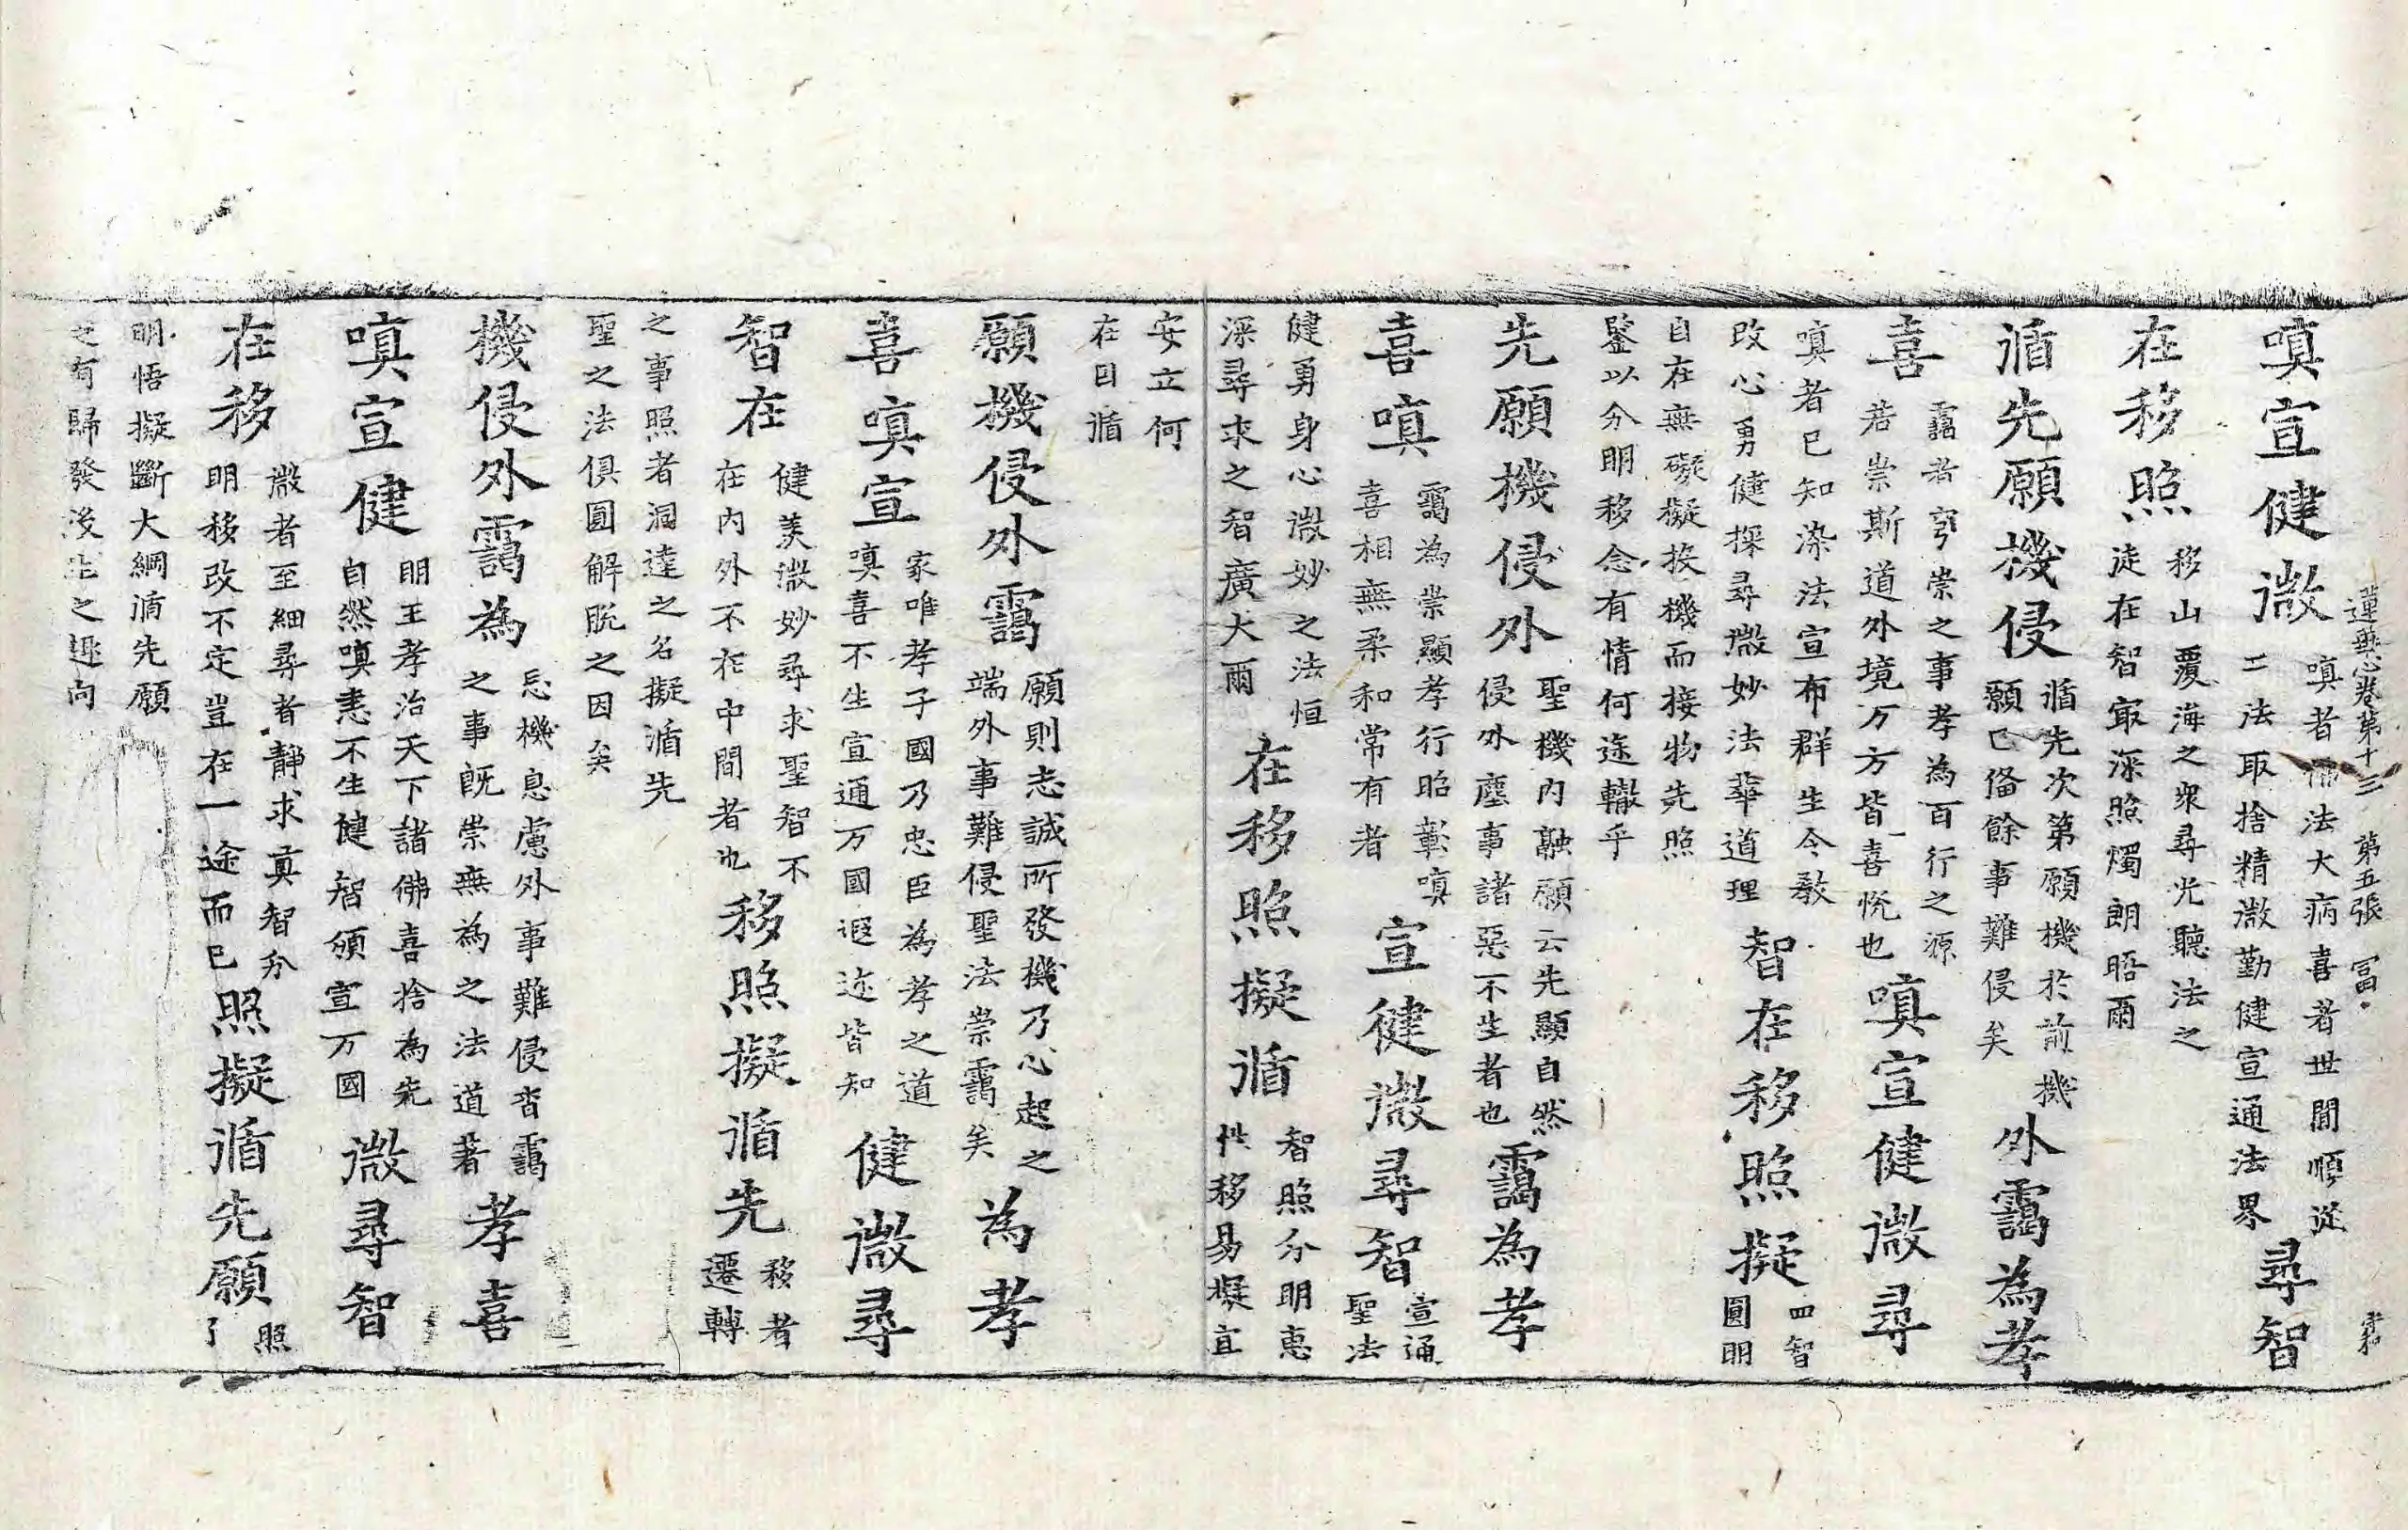 嗔宣健微 嗔者佛法大病喜著世間順從二法取捨精微勤健宣通法界 尋智
蓮華心卷第十三 第五張 冨
在移照 移山覆海之衆尋光聽法之徒在智㝡深照燭朗晤爾
循先願機侵 循先次第願機於前機願已俻餘事難侵矣 外靄為孝
喜 靄者穹崇之事孝為百行之源若崇斯道外境万方皆喜悅也 嗔宣健微尋
嗔者已知染法宣布群生令教
改心勇健探尋微妙法華道理 智在移照擬 四智圓明
自在無礙擬按機而接物先照
鑒以分明移念有情何途轍乎
先願機侵外 聖機內融願云先顯自然侵外塵事諸惡不生者也 靄為孝
喜嗔 靄為崇顯孝行昭彰嗔喜相無柔和常有者 宣健微尋智 宣通聖法
健勇身心微妙之法恒
深尋求之智廣大爾 在移照擬循 智照分明惠性移易擬宜
安立何
在目循
願機侵外靄 願則志誠所發機乃心起之端外事難侵聖法崇靄矣 為孝
喜嗔宣 家唯孝子國乃忠臣為孝之道嗔喜不生宣通万國遐迩皆知 健微尋
智在 健羙微妙尋求聖智不在內外不在中間者也 移照擬循先 移者遷轉
之事照者洞達之名擬循先
聖之法俱圓解脫之因矣
機侵外靄為 忘機息慮外事難侵沓靄之事旣崇無為之法道著 孝喜
嗔宣健 明王孝治天下諸佛喜捨為先自然嗔恚不生健智頒宣万國 微尋智
在移 微者至細尋者靜求真智分明移改不定豈在一途而已 照擬循先願 照了
明悟擬斷大綱循先願
之有歸發後生之趣向